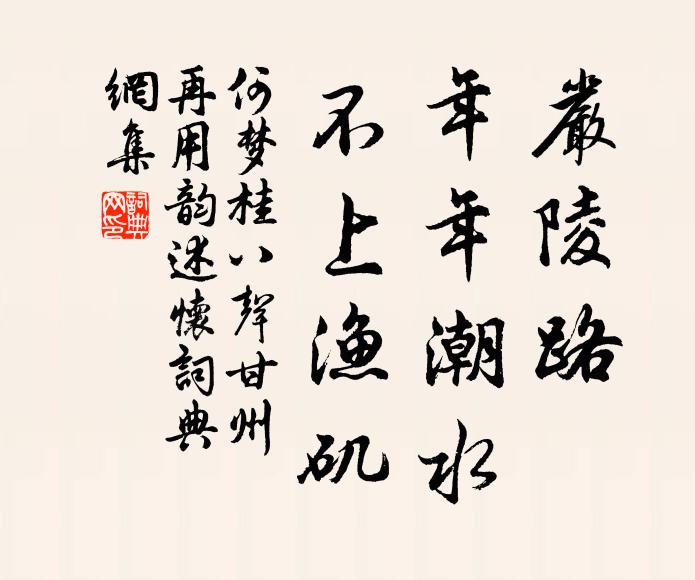 嚴陵路
年年潮水
不上漁矶
何梦桂八聲甘州
再用韵述懷詞典
網集
詞典網印